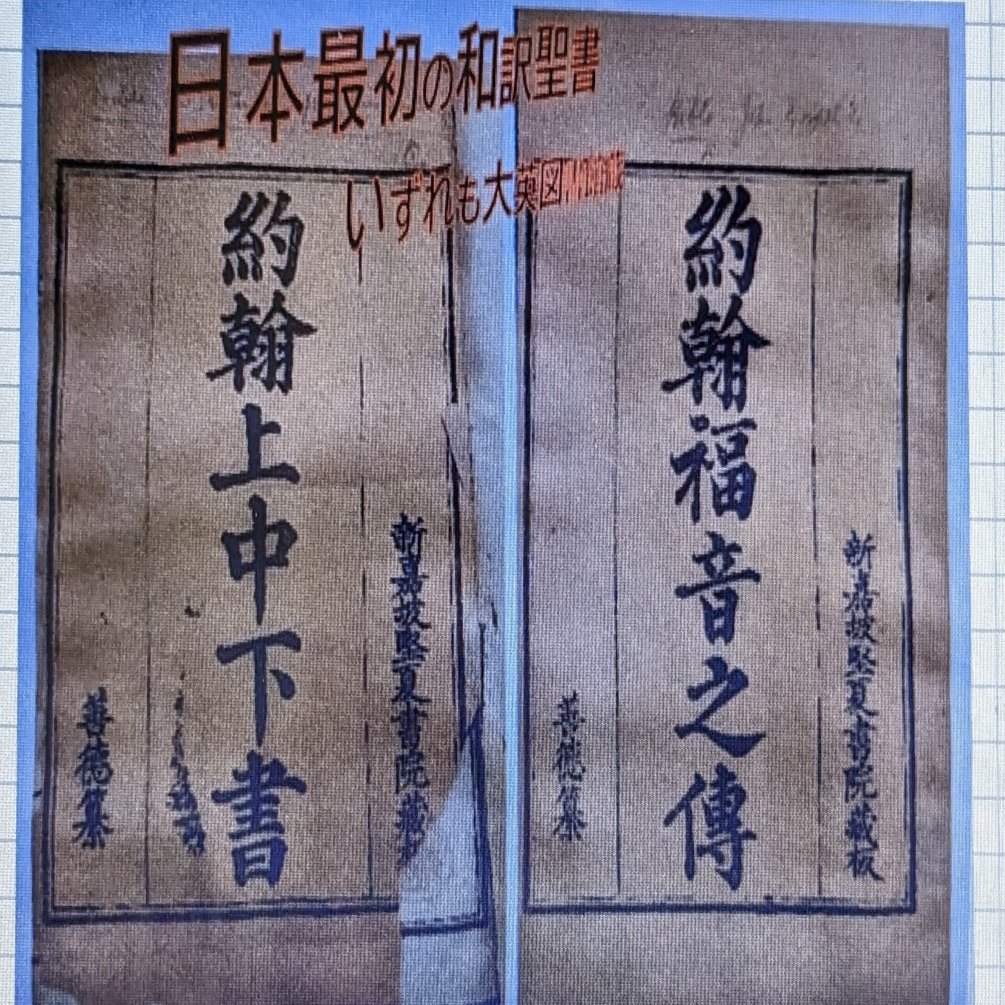 日本最初の和訳聖書
いずれも大英図書館所蔵
新嘉坡堅夏書院藏板
約翰福音之傳
善德纂
新嘉坡堅夏書院藏
約翰上中下書
善德纂